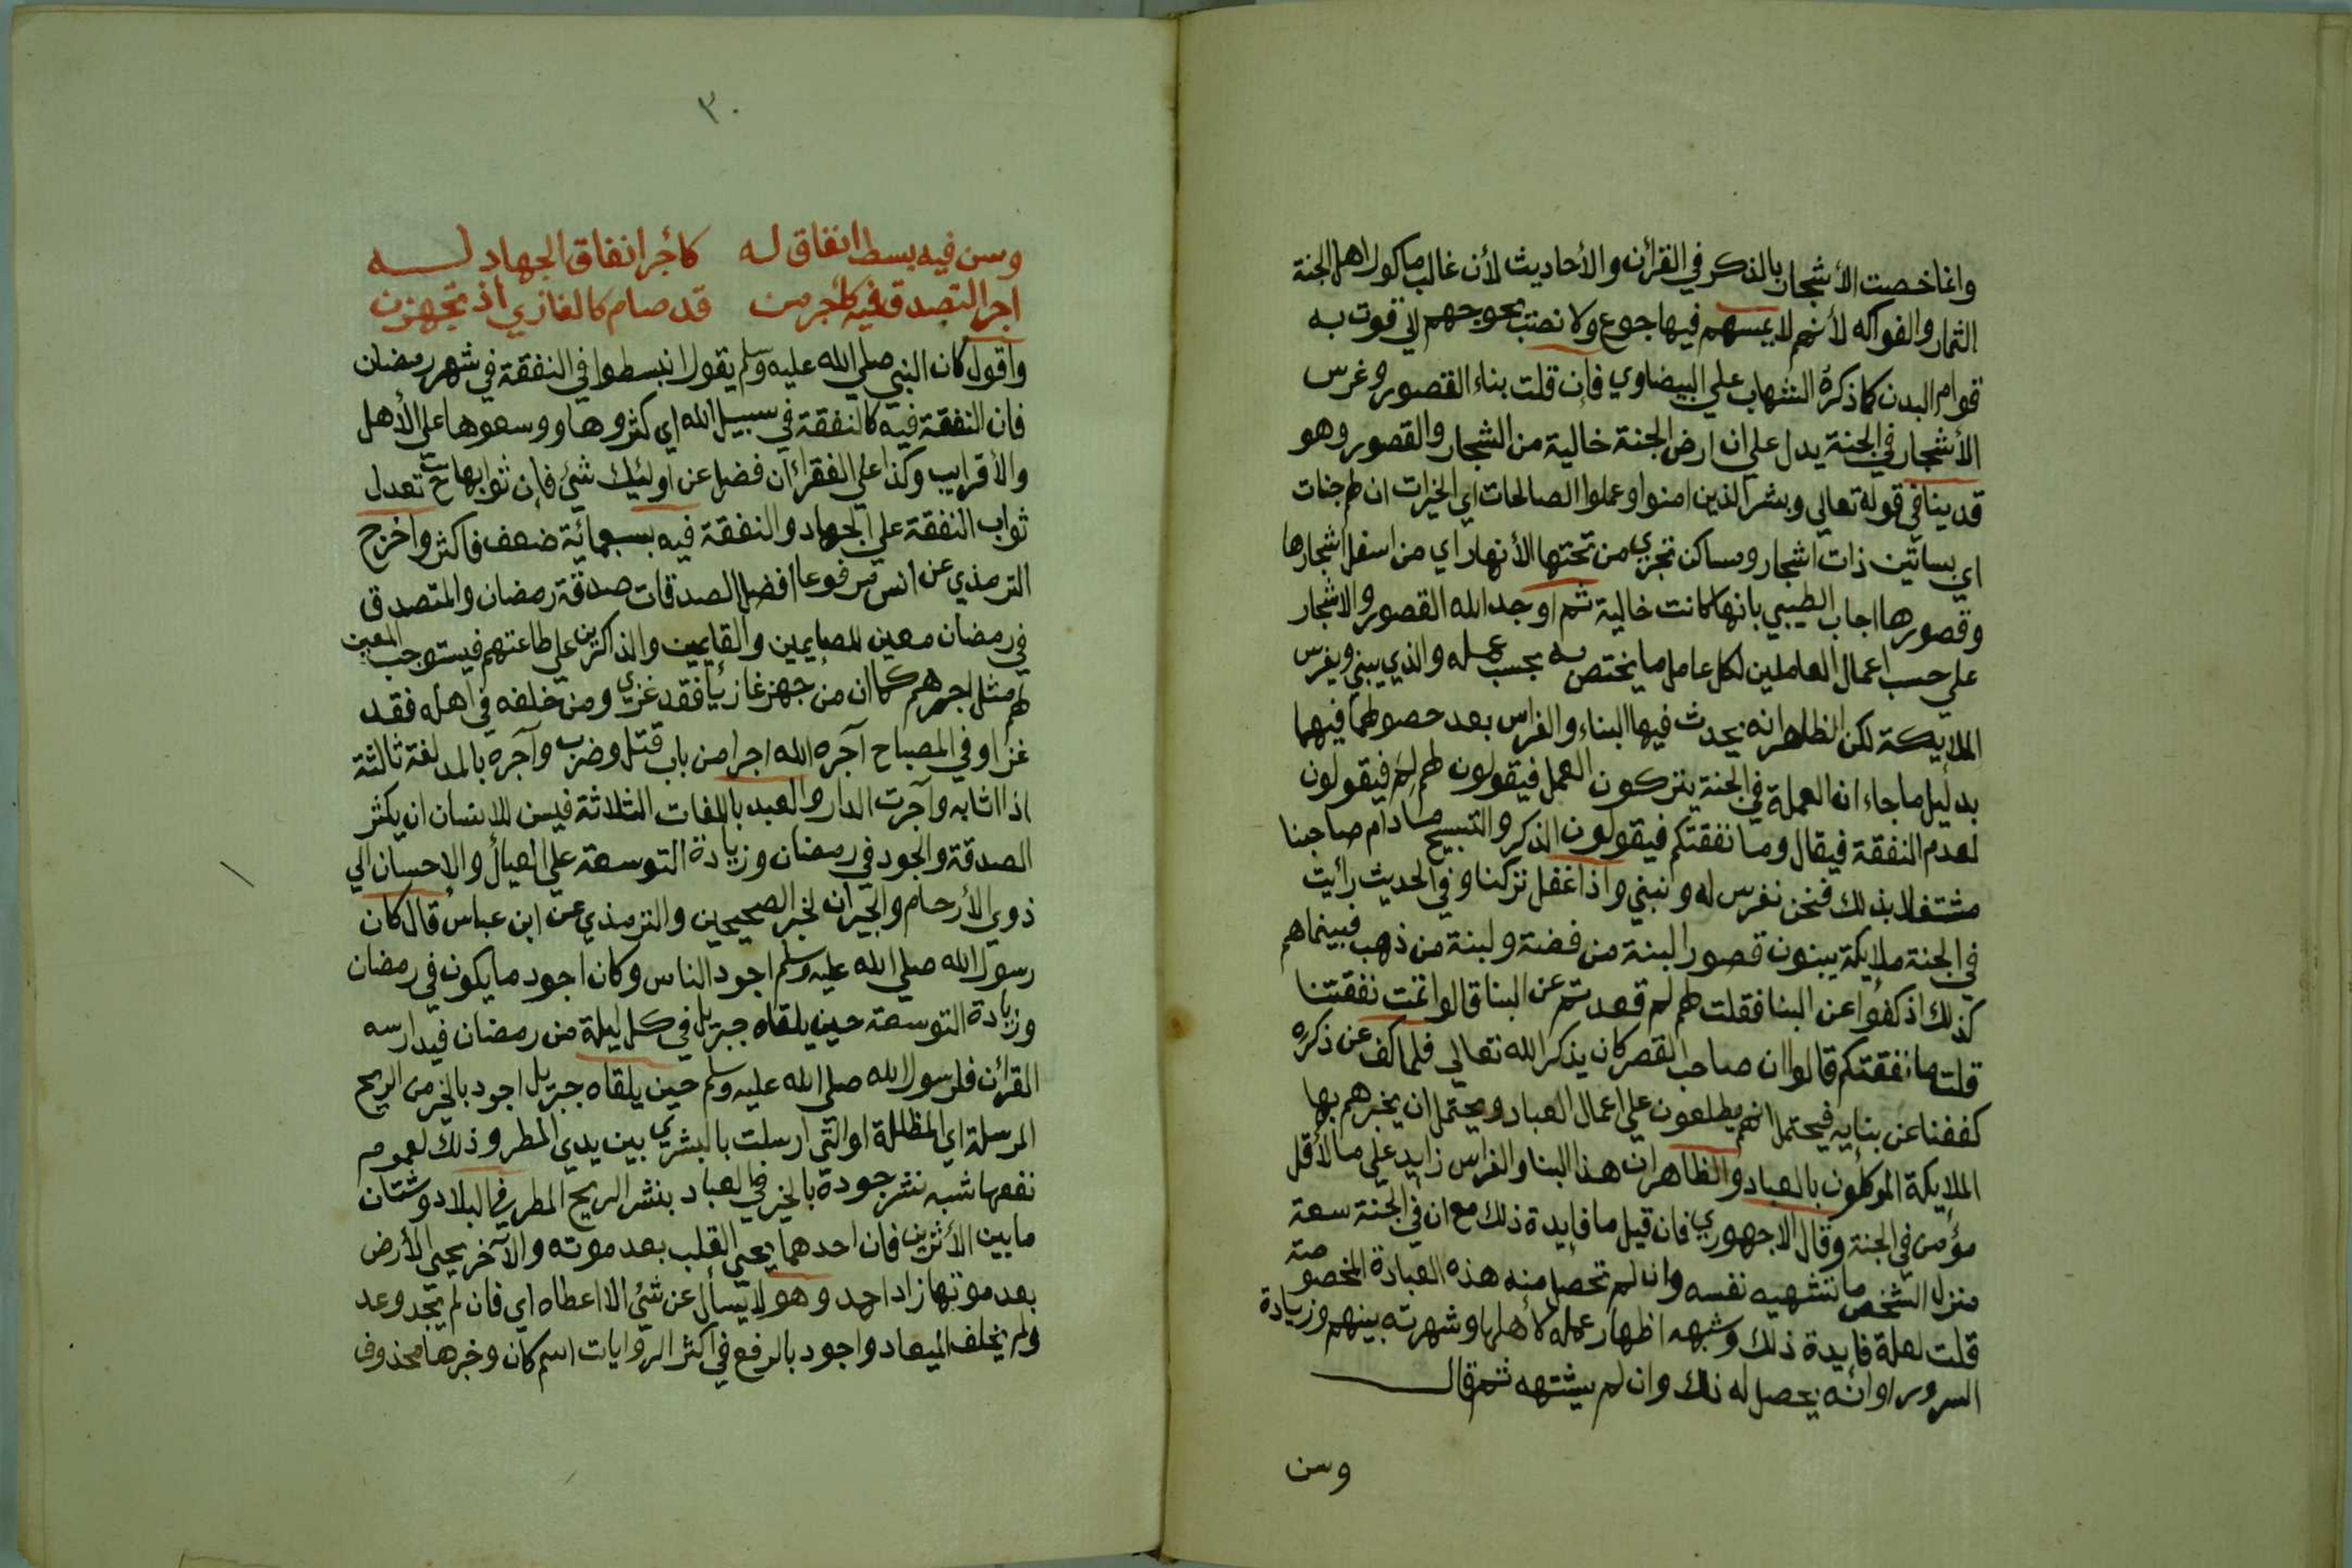 وانما خصت الأشجار بالذكر في القرأن والأحاديث لأن غالب ماكول اهل الجنة
الثمار والفواكه لأنهم لا يمسهم فيها جوع ولا نصب يحوجهم الي قوت به
قوام البدن كما ذكره الشهاب علي البيضاوي فإن قلت بناء القصور وغرس
الأشجار في الجنة يدل علي ان ارض الجنة خالية من الشجار والقصور وهو
قد ينافي قوله تعالي وبشر الذين امنوا وعملوا الصالحات اي الخيرات ان لهم جنات
اي بساتين ذات اشجار ومساكن تجري من تحتها الأنهار اي من اسفل اشجارها
وقصورها اجاب الطيبي بانها كانت خالية ثم اوجد الله القصور والاشجار
علي حسب اعمال العاملين لكل عامل ما يختص به بحسب عمله والذي يبني ويغرس
الملايكة لكن الظاهر انه يحدث فيها البناء والغراس بعد حصولهما فيهما
بدليل ما جاء ان العملة في الجنة يتركون العمل فيقولون لهم لِمَ فيقولون
لعدم النفقة فيقال وما نفقتكم فيقولون الذكر والتسبيح ما دام صاحبنا
مشتغلا بذلك فنحن نغرس له ونبني واذا غفل تركنا وفي الحديث رأيت
في الجنة ملايكة يبنون قصورا لبنة من فضة ولبنة من ذهب فبينما هم
كذلك اذ كفوا عن البنا فقلت لهم لم قعدتم عن البنا قالوا تمت نفقتنا
قلت ما نفقتكم قالوا ان صاحب القصر كان يذكر الله تعالي فلما كف عن ذكره
كففنا عن بنايه فيحتمل انهم يطلعون علي اعمال العباد ويحتمل ان يخبرهم بها
الملايكة الموكلون بالعباد والظاهر ان هذا البنا والغراس زايد علي ما لأقل
مؤمن في الجنة وقال الاجهوري فان قيل ما فايدة ذلك مع ان في الجنة سعة
منزل الشخص ما تشتهيه نفسه وان لم تحصل منه هذه العبادة المخصوصة
قلت لعلة فايدة ذلك وشبهه اظهار عمله لأهلها وشهرته بينهم وزيادة
السرور او انه يحصل له ذلك وان لم يشتهه ثم قال
وسن
٣٠
وسن فيه بسط انفاق له كأجر انفاق الجهاد له
اجر التصدق فيه كأجر من قد صام كالغازي اذ تجهزن
واقول كان النبي صلي الله عليه وسلم يقول انبسطوا في النفقة في شهر رمضان
فان النفقة فيه كالنفقة في سبيل الله اي كثروها ووسعوها علي الأهل
والأقرايب وكذا علي الفقراء ان فضل عن اوليئك شيئ فإن ثوابها ح تعدل
ثواب النفقة علي الجهاد والنفقة فيه بسبعمائة ضعف فاكثر واخرج
الترمذي عن انس مرفوعا افضل الصدقات صدقة رمضان والمتصدق
في رمضان معين للصايمين والقايمين والذاكرين علي طاعتهم فيستوجب المعين
لهم مثل اجرهم كما ان من جهز غازيا فقد غزي ومن خلفه في اهله فقد
غزا وفي المصباح آجره الله اجرا من باب قتل وضرب وآجره بالمد لغة ثالثة
اذا اثابه وآجرت الدار والعبد باللغات الثلاثة فيسن للانسان ان يكثر
الصدقة والجود في رمضان وزيادة التوسعة علي العيال والاحسان الي
ذوي الأرحام والجيران لخبر الصحيحين والترمذي عن ابن عباس قال كان
رسول الله صلي الله عليه وسلم اجود الناس وكان اجود ما يكون في رمضان
وزيادة التوسعة حين يلقاه جبريل في كل ليلة من رمضان فيدارسه
القرأن فلرسول الله صلي الله عليه وسلم حين يلقاه جبريل اجود بالخير من الريح
المرسلة اي المظللة او التي ارسلت بالبشري بين يدي المطر وذلك لعموم
نفعها شبه نشر جوده بالخير في العباد بنشر الريح المطر في البلاد وشتان
ما بين الأثرين فان احدهما يحي القلب بعد موته والآخر يحي الأرض
بعد موتها زاد احمد وهو لا يسأل عن شيئ الا اعطاه اي فان لم يجد وعد
ولم يخلف الميعاد واجود بالرفع في اكثر الروايات اسم كان وخبرها محذوف